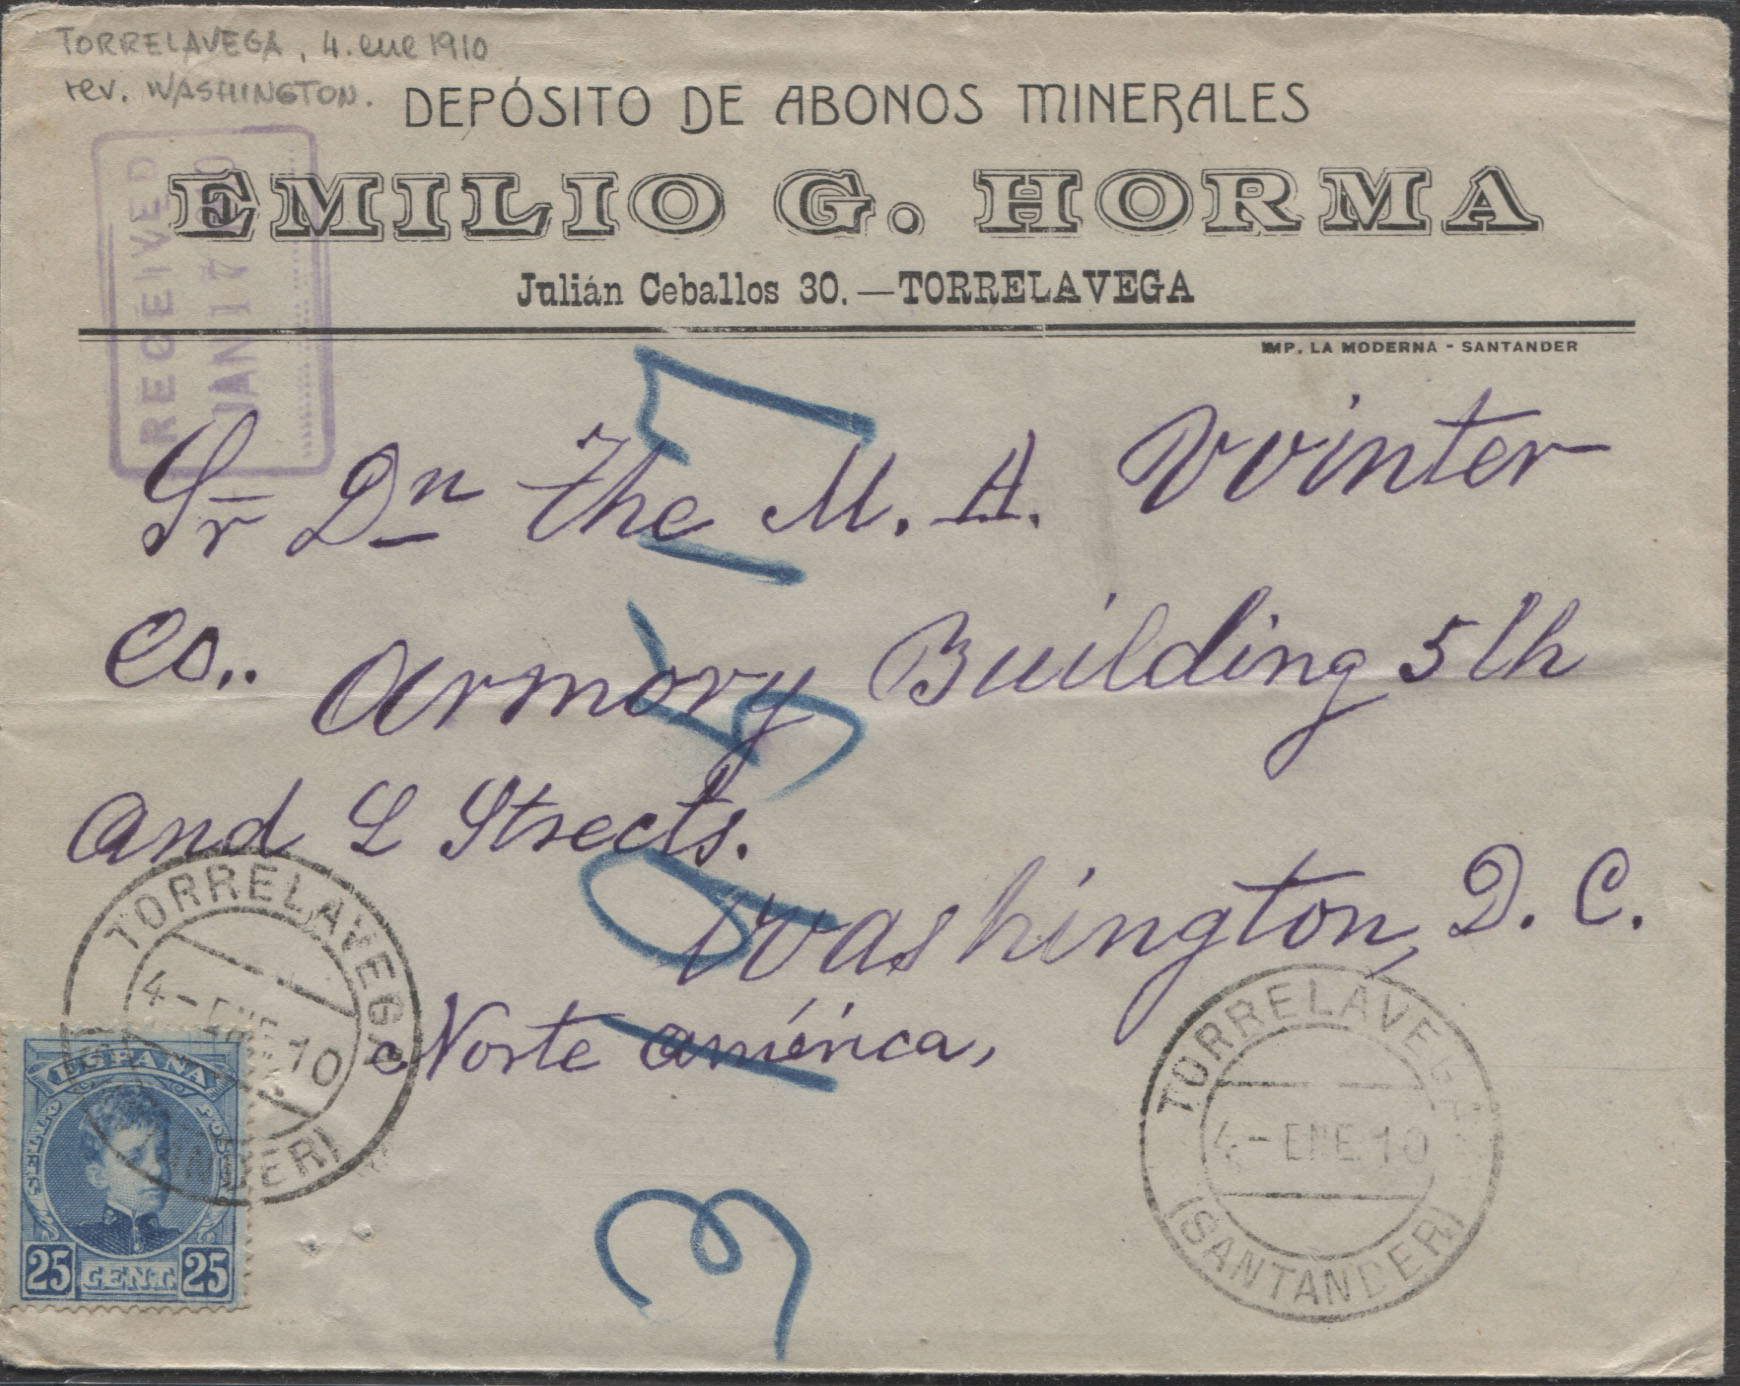 TORRELAVEGA, 4. ene 1910
rev. WASHINGTON.
DEPÓSITO DE ABONOS MINERALES
EMILIO G. HORMA
Julián Ceballos 30.—TORRELAVEGA
IMP. LA MODERNA - SANTANDER
RECEIVED
JAN 17
Sr Dn The M. A. Winter
Co.. Armory Building 5th
and L Streets.
Washington, D. C.
Norte América,
TORRELAVEGA
4-ENE 10
(SANTANDER)
ESPAÑA
CORREOS
25 CENT. 25
TORRELAVEGA
4-ENE 10
(SANTANDER)